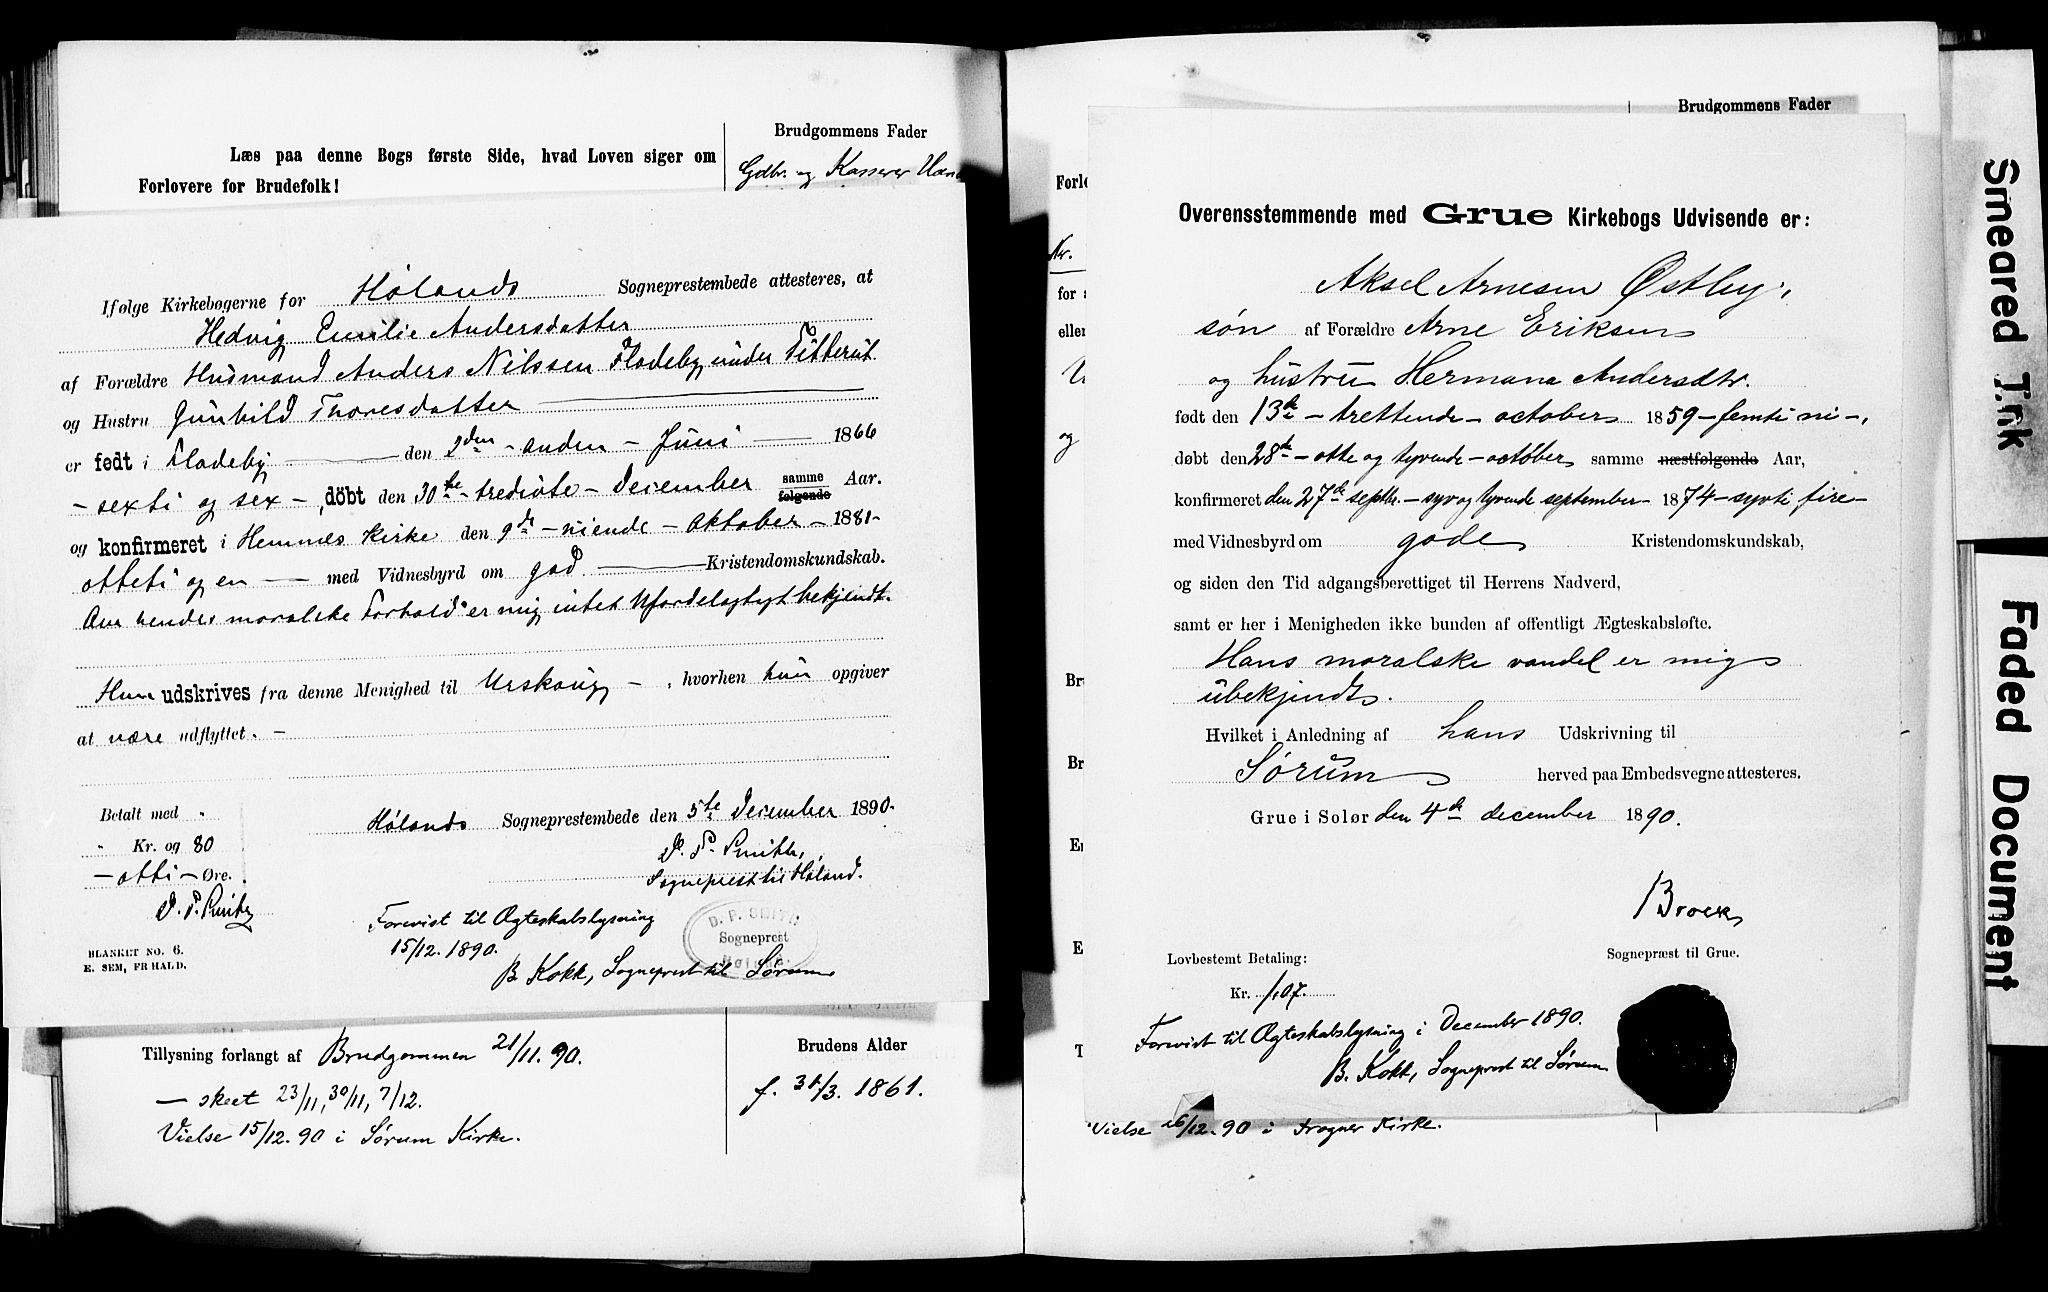 Brudgommens Fader
Læs paa denne Bogs første Side, hvad Loven siger om
Forlovere for Brudefolk!
Gdbr. og Kasserer
Ifølge Kirkebøgerne for Hølands Sogneprestembede attesteres, at
Hedvig Emilie Andersdatter
af Forældre Husmand Anders Nilssen Flodeby under
og Hustru Gunhild Thoresdatter
er født i Flodeby den 2den - anden - Juni 1866
- sexti og sex -, döbt den 30te - trediote - December samme følgende Aar.
og konfirmeret i Hemnes Kirke den 9de - niende - Oktober - 1881 -
otteti og en - med Vidnesbyrd om god Kristendomskundskab.
Om hendes moralske Forhold er mig intet ufordelagtigt bekjendt.
Hun udskrives fra denne Menighed til Urskoug -, hvorhen hun opgiver
at være udflyttet. -
Betalt med "
" Kr. og 80
- otti - Øre.
D. P. Smith
BLANKET NO. 6.
E. SEM, FR HALD.
Hølands Sogneprestembede den 5te December 1890.
D. P. Smith,
Sogneprest til Høland.
D. P. SMITH
Sogneprest
Høland.
Forevist til Ægteskabslysning
15/12. 1890.
B. Kokk, Sogneprest til Sørum
Tillysning forlangt af Brudgommen 21/11. 90.
— skeet 23/11, 30/11, 7/12.
Vielse 15/12. 90 i Sørum Kirke.
Brudens Alder
f. 31/3. 1861.
Brudgommens Fader
Forl
Nr.
for
eller
U
og
Br
Br
E
E
T
Overensstemmende med Grue Kirkebogs Udvisende er:
Aksel Arnesen Østby,
søn af Forældre Arne Eriksen
og hustru Hermana Andersdtr.
født den 13de - trettende - october 1859 - femti ni -,
døbt den 28de - otte og tyvende - october samme næstfølgende Aar,
konfirmeret den 27de septbr. - syv og tyvende september - 1874 - sytti fire -
med Vidnesbyrd om gode Kristendomskundskab,
og siden den Tid adgangsberettiget til Herrens Nadverd,
samt er her i Menigheden ikke bunden af offentligt Ægteskabsløfte.
Hans moralske vandel er mig
ubekjendt.
Hvilket i Anledning af hans Udskrivning til
Sørum herved paa Embedsvegne attesteres.
Grue i Solør den 4de december 1890.
Brock
Sognepræst til Grue.
Lovbestemt Betaling:
Kr. 1,07.
Forevist til Ægteskabslysning i December 1890.
B. Kokk, Sogneprest til Sørum
Vielse 26/12. 90 i Frogner Kirke.
Smeared Ink
Faded Document